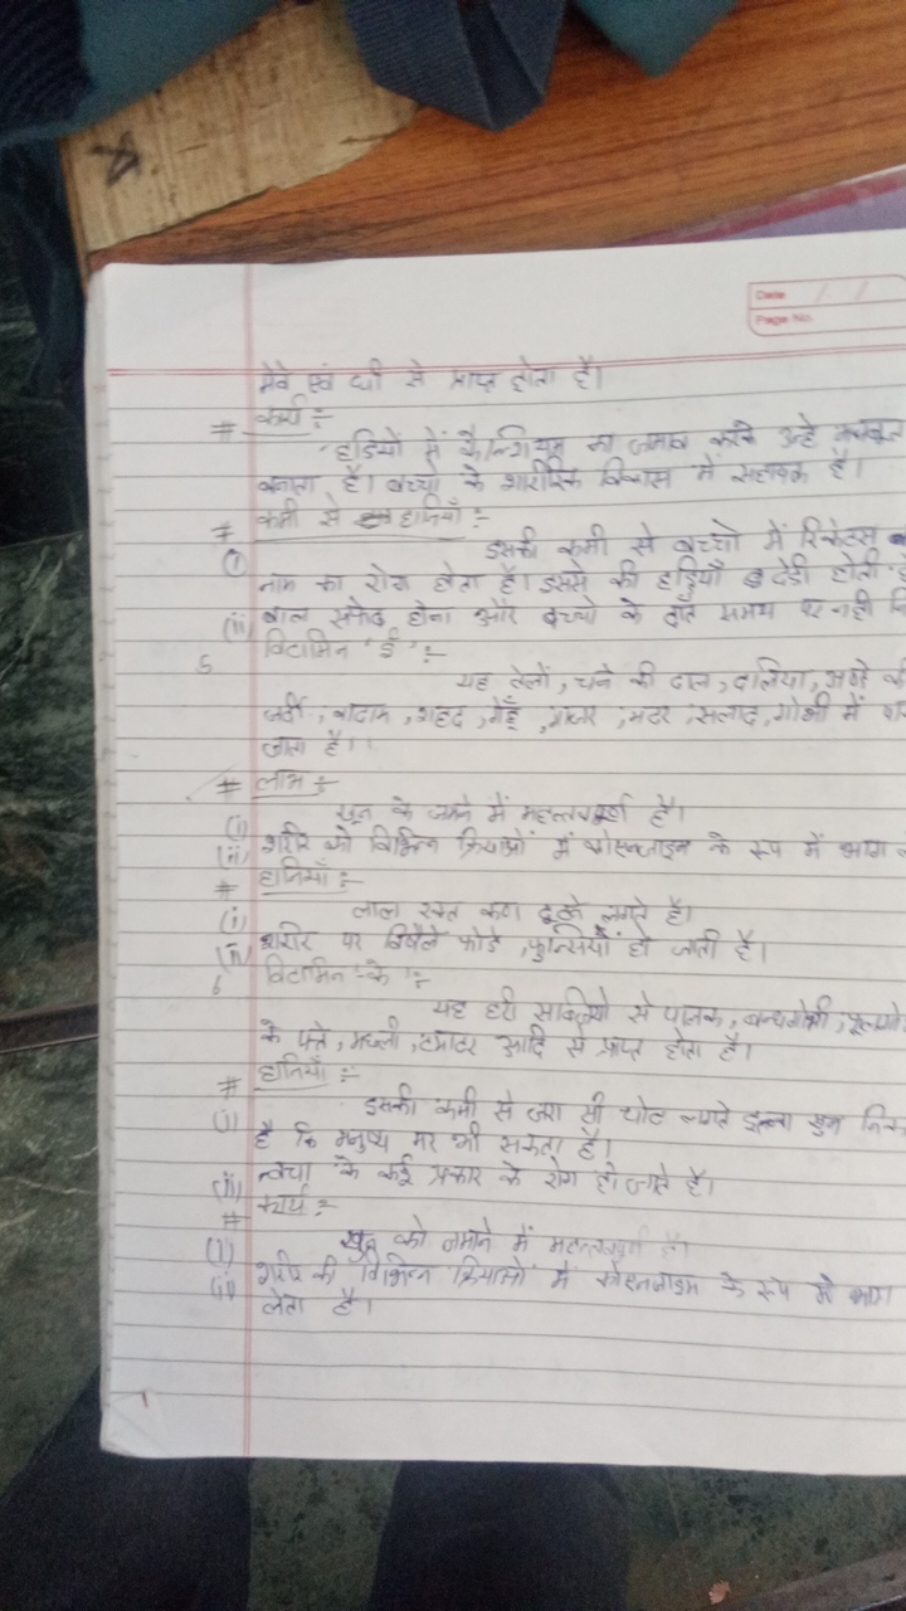 Date / /
Page No.
मेवे एवं घी से प्राप्त होता है।
# कार्य :-
हडियों में कैल्शियम का जमाव करके उन्हे मजबूत
बनाता है। बच्चो के शारीरिक विकास में सहायक है।
# कमी से हानियाँ :-
(i) इसकी कमी से बच्चो में रिकेट्स
नाम का रोग होता है। इससे की हड्डियाँ टेडी होती
(ii) बाल सफेद होना और बच्चो के दाँत समय पर नही
5 विटामिन 'ई' :-
यह तेलों, चने की दाल, दालिया, अण्डे की
जर्दी, बादाम, शहद, गेहूँ, गाजर, मटर, सलाद, गोभी में
जाता है।
# लाभ :-
(i) खून के जमने में महत्त्वपूर्ण है।
(ii) शरीर की विभिन्न क्रियाओं में कोएन्जाइम के रूप में भाग
# हानियाँ :-
(i) लाल रक्त कण टूटने लगते है।
(ii) शरीर पर विषैले फोडे, फुन्सियाँ हो जाती है।
6 विटामिन 'के' :-
यह हरी सब्जियो से पालक, बन्दगोभी,
के पत्ते, मछली, टमाटर आदि से प्राप्त होता है।
# हानियाँ :-
(i) इसकी कमी से जरा सी चोट लगते इतना खुन
है कि मनुष्य मर भी सकता है।
(ii) त्वचा के कई प्रकार के रोग हो जाते है।
# कार्य :-
(i) खुन को जमाने में महत्त्वपूर्ण है।
(ii) शरीर की विभिन्न क्रियाओं में कोएनजाइम के रूप मे भाग
लेता है।